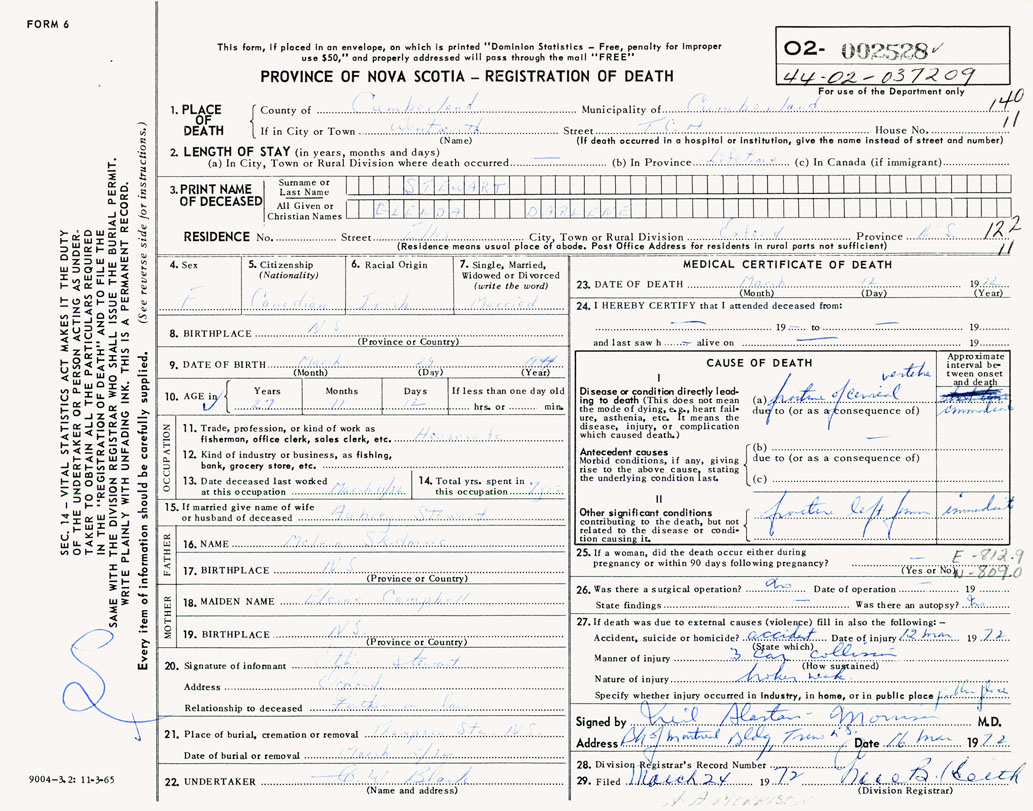 FORM 6
This form, if placed in an envelope, on which is printed "Dominion Statistics – Free, penalty for improper
use $50," and properly addressed will pass through the mail "FREE"
PROVINCE OF NOVA SCOTIA – REGISTRATION OF DEATH
O2- 002528
44-02-037209
For use of the Department only
140
11
1. PLACE OF DEATH
County of Cumberland Municipality of Cumberland
If in City or Town Wentworth Street T.C.H House No.
(Name) (If death occurred in a hospital or institution, give the name instead of street and number)
2. LENGTH OF STAY (in years, months and days)
(a) In City, Town or Rural Division where death occurred — (b) In Province Lifetime (c) In Canada (if immigrant)
3. PRINT NAME OF DECEASED
Surname or Last Name STEWART
All Given or Christian Names GLENDA DARLENE
RESIDENCE No. Street City, Town or Rural Division Oxford Province N.S.
(Residence means usual place of abode. Post Office Address for residents in rural parts not sufficient)
122
11
4. Sex F
5. Citizenship (Nationality) Canadian
6. Racial Origin Irish
7. Single, Married, Widowed or Divorced (write the word) Married
8. BIRTHPLACE N.S.
(Province or Country)
9. DATE OF BIRTH March 29 1944
(Month) (Day) (Year)
10. AGE in Years 27 Months 11 Days 12 If less than one day old hrs. or min.
OCCUPATION
11. Trade, profession, or kind of work as fisherman, office clerk, sales clerk, etc. Housewife
12. Kind of industry or business, as fishing, bank, grocery store, etc.
13. Date deceased last worked at this occupation
14. Total yrs. spent in this occupation
15. If married give name of wife or husband of deceased Aubrey Stewart
FATHER
16. NAME
17. BIRTHPLACE N.S.
(Province or Country)
MOTHER
18. MAIDEN NAME Campbell
19. BIRTHPLACE N.S.
(Province or Country)
20. Signature of informant Stewart
Address Oxford
Relationship to deceased Father in law
21. Place of burial, cremation or removal Thompson Sta. N.S.
Date of burial or removal March
22. UNDERTAKER
(Name and address)
MEDICAL CERTIFICATE OF DEATH
23. DATE OF DEATH March 12 1972
(Month) (Day) (Year)
24. I HEREBY CERTIFY that I attended deceased from:
— 19 — to — 19
and last saw h — alive on — 19
CAUSE OF DEATH
Approximate interval between onset and death
I
Disease or condition directly leading to death (This does not mean the mode of dying, e.g., heart failure, asthenia, etc. It means the disease, injury, or complication which caused death.)
(a) fracture of cervical vertebra immediate
due to (or as a consequence of)
Antecedent causes
Morbid conditions, if any, giving rise to the above cause, stating the underlying condition last.
(b) —
due to (or as a consequence of)
(c)
II
Other significant conditions contributing to the death, but not related to the disease or condition causing it.
fracture left immediate
25. If a woman, did the death occur either during pregnancy or within 90 days following pregnancy? —
(Yes or No)
E-812.9
N-809.0
26. Was there a surgical operation? no Date of operation — 19
State findings — Was there an autopsy? no
27. If death was due to external causes (violence) fill in also the following: –
Accident, suicide or homicide? accident Date of injury 12 Mar 1972
(State which)
Manner of injury 3 Car collision
(How sustained)
Nature of injury broken neck
Specify whether injury occurred in Industry, in home, or in public place public place
Signed by Neil Alastair Morrison M.D.
Address Bk of Montreal Bldg, Truro N.S. Date 16 Mar 1972
28. Division Registrar's Record Number
29. Filed March 24 1972
(Division Registrar)
SEC. 14 – VITAL STATISTICS ACT MAKES IT THE DUTY
OF THE UNDERTAKER OR PERSON ACTING AS UNDER-
TAKER TO OBTAIN ALL THE PARTICULARS REQUIRED
IN THE "REGISTRATION OF DEATH" AND TO FILE THE
SAME WITH THE DIVISION REGISTRAR WHO SHALL ISSUE THE BURIAL PERMIT.
WRITE PLAINLY WITH UNFADING INK. THIS IS A PERMANENT RECORD.
Every item of information should be carefully supplied. (See reverse side for instructions.)
9004–3.2: 11-3-65